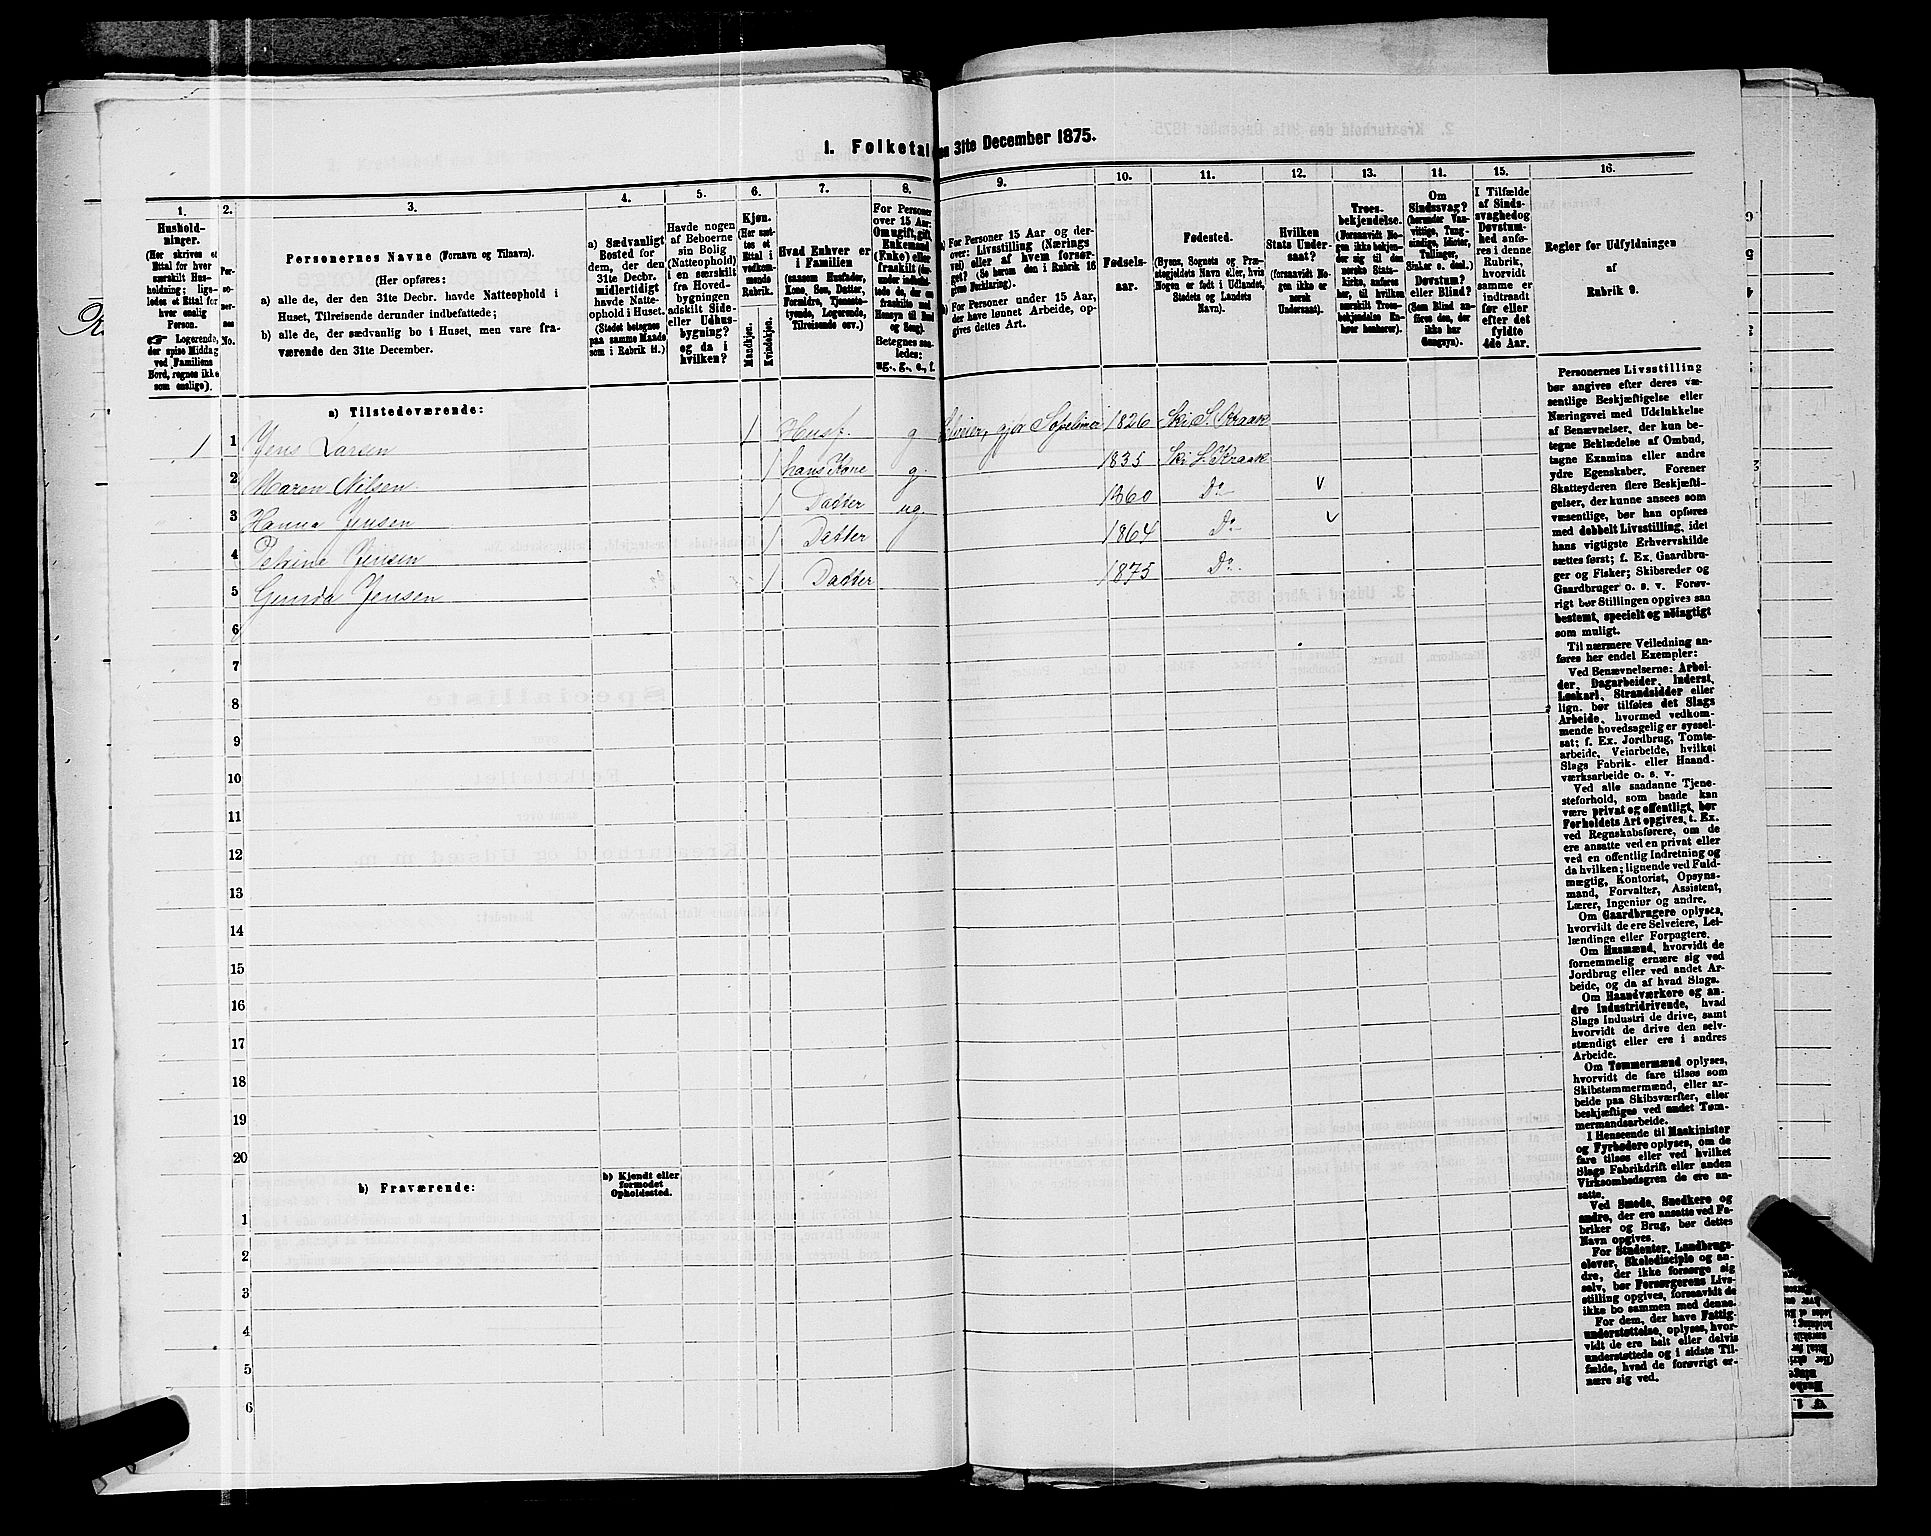 1. Folketal
en 31te December 1875.
1.
Hushold-
ninger.
(Her skrives et
Ettal for hver
særskilt Hus-
holdning; lige-
ledes et Ettal for
hver enslig
Person.
Logerende,
der spise Middag
ved Familiens
Bord, regnes ikke
som enslige).
2.
No.
3.
Personernes Navne (Fornavn og Tilnavn).
(Her opføres:
a) alle de, der den 31te Decbr. havde Natteophold i
Huset, Tilreisende derunder indbefattede;
b) alle de, der sædvanlig bo i Huset, men vare fra-
værende den 31te December.
4.
a) Sædvanligt
Bosted for
dem, der den
31te Decbr.
midlertidigt
havde Natte-
ophold i Huset.
(Stedet betegnes
paa samme Maade
som i Rubrik 11.)
5.
Havde nogen
af Beboerne
sin Bolig
(Natteophold)
i en særskilt
fra Hoved-
bygningen
adskilt Side-
eller Udhus-
bygning?
og da i
hvilken?
6.
Kjøn.
(Her sæt-
tes et
Ettal i
vedkom-
mende
Rubrik.
Mandkjøn.
Kvindekjøn.
7.
Hvad Enhver er
i Familien
(saasom Husfader,
Kone, Søn, Datter,
Forældre, Tjeneste-
tyende, Logerende,
Tilreisende osv.)
8.
For Personer
over 15 Aar:
Om ugift, gift,
Enkemand
(Enke) eller
fraskilt
Betegnes saa-
ledes:
ug., g., e., f.
9.
a) For Personer 15 Aar og der-
over: Livsstilling (Nærings
vei) eller af hvem forsør-
get? (Se herom den i Rubrik 16
givne Forklaring).
b) For Personer under 15 Aar,
der have lønnet Arbeide, op-
gives dettes Art.
10.
Fødsels-
aar.
11.
Fødested.
(Byens, Sognets og Præ-
stegjeldets Navn eller, hvis
Nogen er født i Udlandet,
Stedets og Landets
Navn).
12.
Hvilken
Stats Under-
saat?
(forsaavidt No-
gen ikke er
norsk
Undersaat).
13.
Troes-
bekjendelse.
(Forsaavidt No-
gen ikke bekjen-
der sig til den
norske Stats-
kirke, anføres
her, til hvilken
anerkjendt Troesbe-
14.
Om
Sindssvag?
(herunder Van-
vittige, Tung-
sindige, Idioter,
Tullinger,
Sinker o. desl.)
Døvstum?
eller Blind?
(Som Blind an-
føres den, der
ikke har
Gangsyn).
15.
I Tilfælde
af Sinds-
svaghed og
Døvstum-
hed anfø-
res i denne
Rubrik,
hvorvidt
samme er
indtraadt
før eller
efter det
fyldte
4de Aar.
16.
Regler for Udfyldningen
af
Rubrik 9.
a) Tilstedeværende:
1 1 Jens Larsen 1 Husf. g gjør 1826 Ski S. Kraak
2 Maren Nilsen 1 hans Kone g. 1835 Ski S. Kraak
3 Hanna Jensen 1 Datter ug. 1860 Do
4 Petrine Jensen 1 Datter 1864 Do
5 Gunda Jensen 1 Datter 1875 Do
6
7
8
9
10
11
12
13
14
15
16
17
18
19
20
b) Fraværende:
b) Kjendt eller
formodet
Opholdssted.
1
2
3
4
5
6
Personernes Livsstilling
bør angives efter deres væ-
sentlige Beskjæftigelse eller
Næringsvei med Udelukkelse
af Benævnelser, der kun be-
tegne Beklædelse af Ombud,
tagne Examina eller andre
ydre Egenskaber. Forener
Skatteyderen flere Beskjæfti-
gelser, der kunne ansees som
væsentlige, bør han opføres
med dobbelt Livsstilling, idet
hans vigtigste Erhvervskilde
sættes først; f. Ex. Gaardbru-
ger og Fisker; Skibsreder og
Gaardbruger o. s. v. Forøv-
rigt bør Stillingen opgives saa
bestemt, specielt og nøiagtigt
som muligt.
Til nærmere Veiledning an-
føres her endel Exempler:
Ved Benævnelserne: Arbei-
der, Dagarbeider, Inderst,
Løskarl, Strandsidder eller
lign. bør tilføies det Slags
Arbeide, hvormed vedkom-
mende hovedsagelig er syssel-
sat; f. Ex. Jordbrug, Tomte-
arbeide, Veiarbeide, hvilket
Slags Fabrik- eller Haand-
værksarbeide o. s. v.
Ved alle saadanne Tjene-
steforhold, som baade kan
være privat og offentligt, bør
Forholdets Art opgives, t. Ex.
ved Regnskabsførere, om de
ere ansatte ved en privat eller
ved en offentlig Indretning og
da hvilken; lignende ved Fuld-
mægtig, Kontorist, Opsyns-
mand, Forvalter, Assistent,
Lærer, Ingeniør og andre.
Om Gaardbrugere oplyses,
hvorvidt de ere Selveiere, Lei-
lændinge eller Forpagtere.
Om Husmænd, hvorvidt de
fornemmelig ernære sig ved
Jordbrug eller ved andet Ar-
beide, og da af hvad Slags.
Om Haandværkere og an-
dre Industridrivende, hvad
Slags Industri de drive, samt
hvorvidt de drive den selv-
stændigt eller ere i andres
Arbeide.
Om Tømmermænd oplyses,
hvorvidt de fare tilsøs som
Skibstømmermænd, eller ar-
beide paa Skibsværfter, eller
beskjæftiges ved andet Tøm-
mermandsarbeide.
I Henseende til Maskinister
og Fyrbødere oplyses, om de
fare tilsøs eller ved hvilket
Slags Fabrikdrift eller anden
Virksomhedsgren de ere an-
satte.
Ved Smede, Snedkere og
andre, der ere ansatte ved Fa-
briker og Brug, bør dettes
Navn opgives.
For Studenter, Landbrugs-
elever, Skoledisciple og an-
dre, der ikke forsørge sig
selv, bør Forsørgerens Livs-
stilling opgives, forsaavidt de
ikke bo sammen med denne.
For dem, der have Fattig-
understøttelse, oplyses, hvor-
vidt de ere helt eller delvis
understøttede og i sidste Til-
fælde, hvad de forøvrigt er-
nære sig ved.